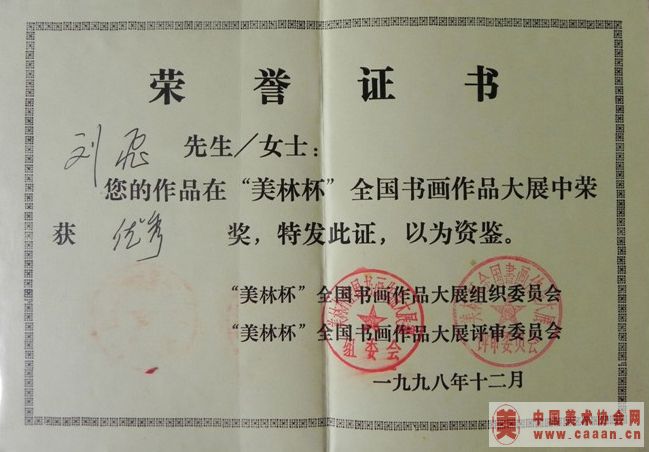 荣誉证书
刘飞 先生／女士：
您的作品在“美林杯”全国书画作品大展中荣
获 优秀 奖，特发此证，以为资鉴。
“美林杯”全国书画作品大展组织委员会
“美林杯”全国书画作品大展评审委员会
组委会
评审委员会
一九九八年十二月
美
中国美术协会网
www.caaan.cn